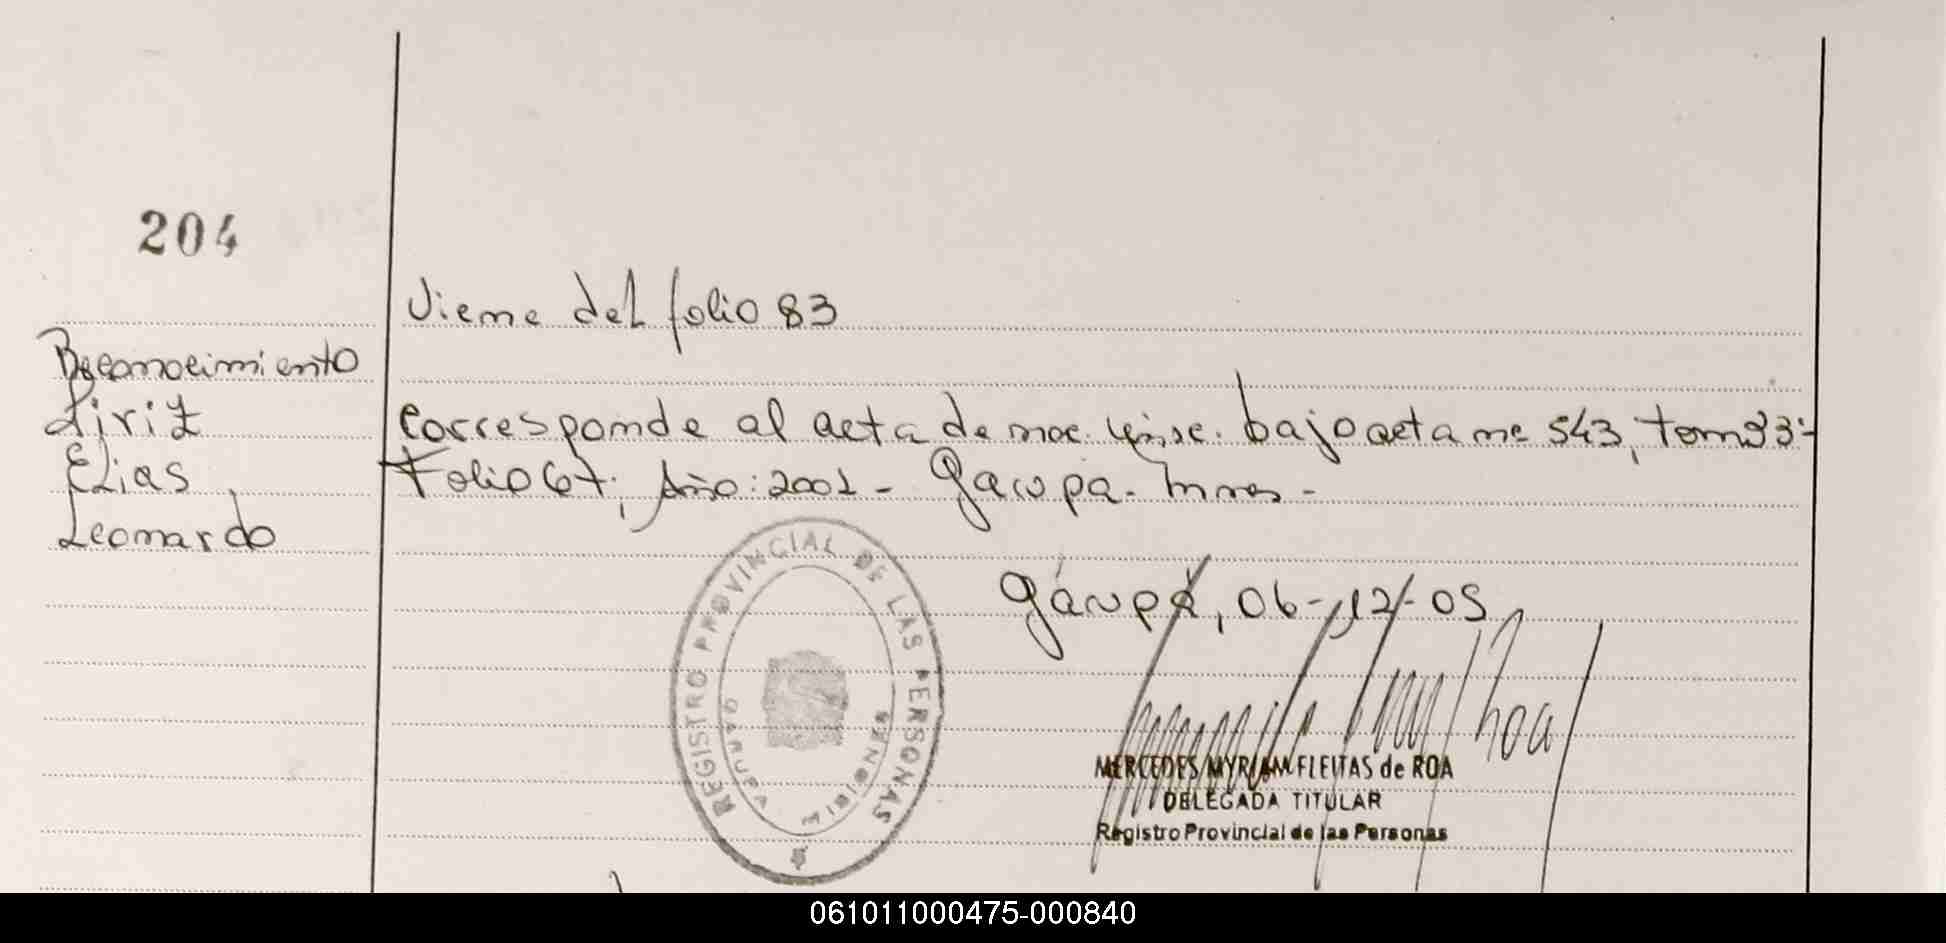 204
Viene del folio 83
Reconocimiento
Liriz
Elias
Leonardo
Corresponde al acta de nac. insc. bajo acta nº 543, tomo 3º-
Folio 67, Año: 2001 - Garupa. Mnes -
Garupá, 06-12-05
REGISTRO PROVINCIAL DE LAS PERSONAS
GARUPA MISIONES
MERCEDES MYRIAM FLEITAS de ROA
DELEGADA TITULAR
Registro Provincial de las Personas
061011000475-000840